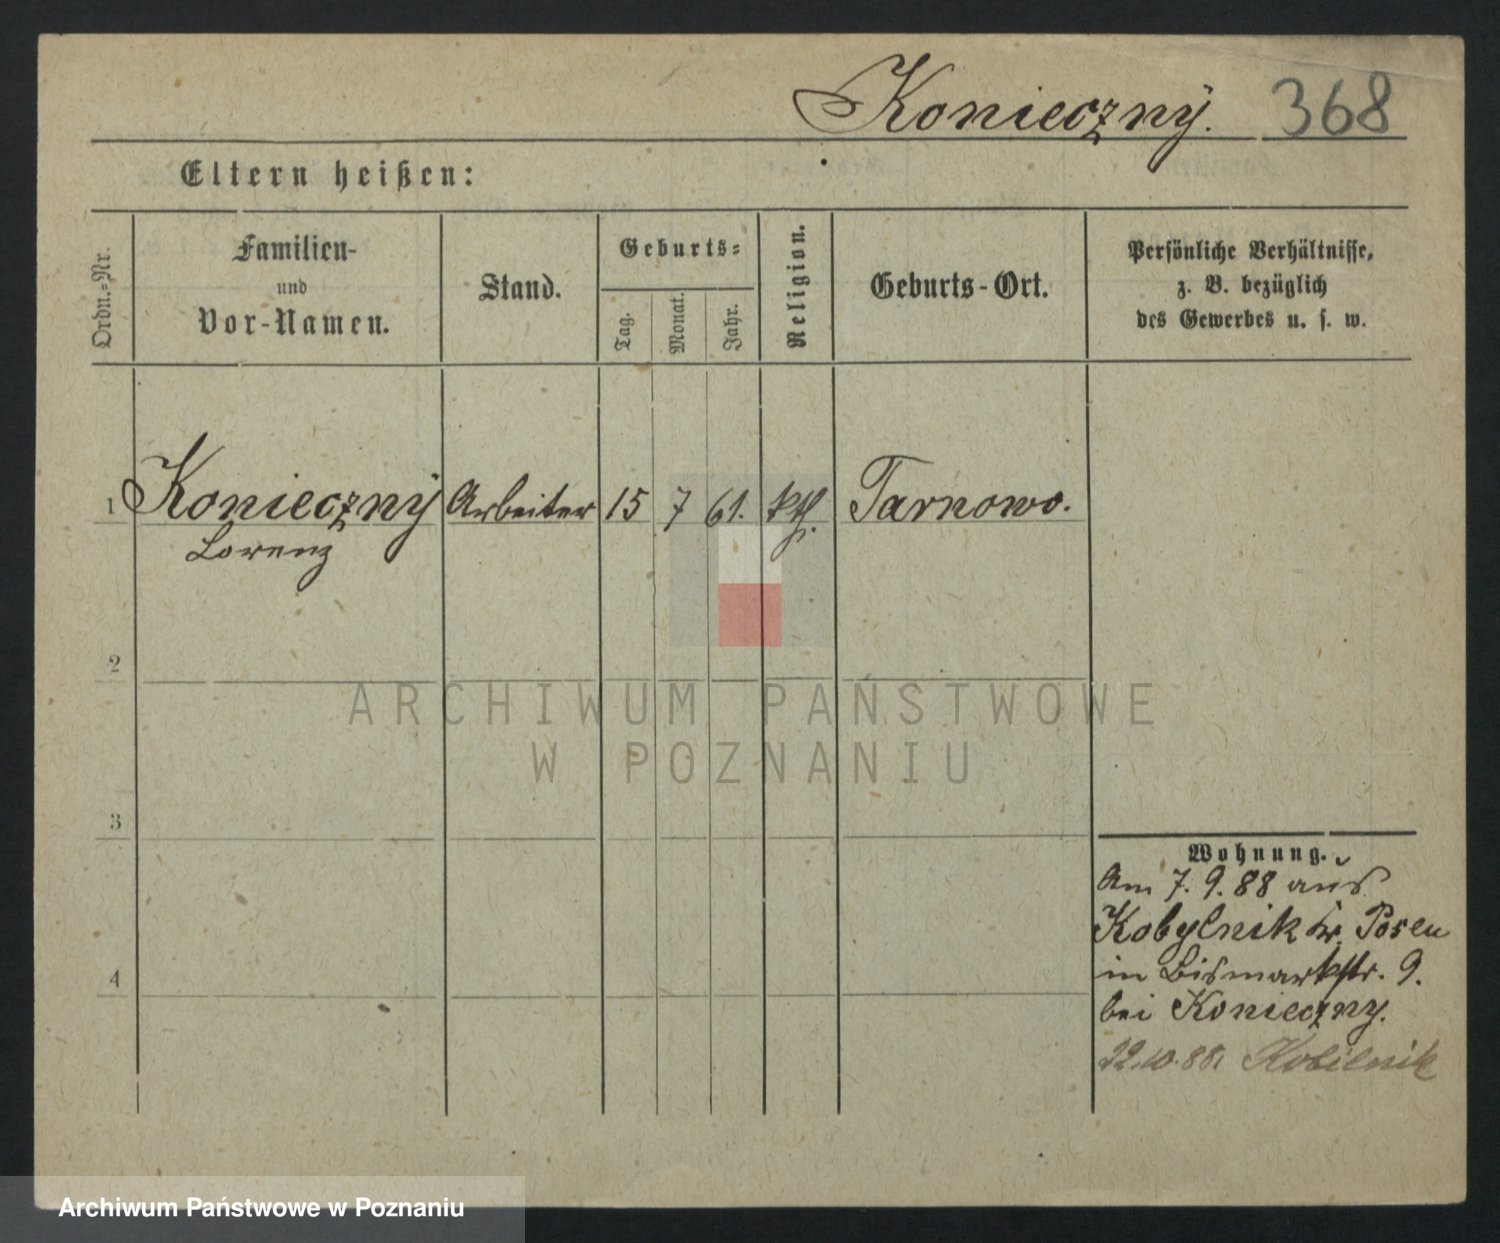 Konieczny. 368
Eltern heißen:
Ordn.-Nr.
Familien-
und
Vor-Namen.
Stand.
Geburts-
Tag.
Monat.
Jahr.
Religion.
Geburts-Ort.
Persönliche Verhältnisse,
z. B. bezüglich
des Gewerbes u. s. w.
1 Konieczny Arbeiter 15 7 61. kth. Tarnowo.
Lorenz
2
3
4
Wohnung.
Am 7. 9. 88 aus
Kobylnik Kr. Posen
in Bismarkstr. 9.
bei Konieczny.
22.10.88. Kobilnik
ARCHIWUM PAŃSTWOWE
W POZNANIU
Archiwum Państwowe w Poznaniu